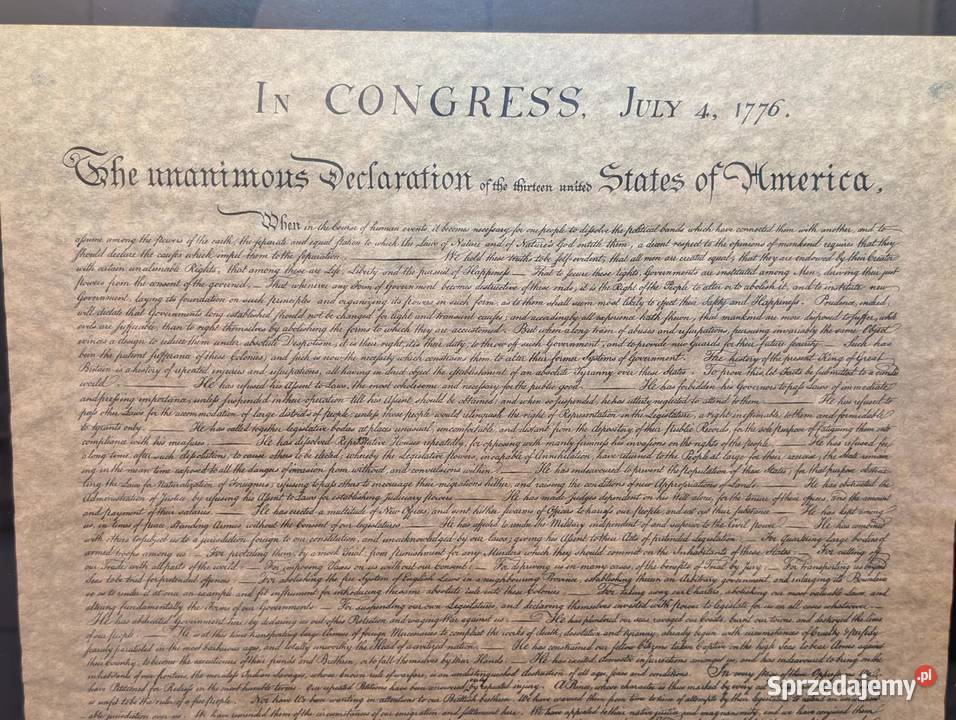 IN CONGRESS, JULY 4, 1776.
The unanimous Declaration of the thirteen united States of America,
When in the Course of human events, it becomes necessary for one people to dissolve the political bands which have connected them with another, and to
assume among the powers of the earth, the separate and equal station to which the Laws of Nature and of Nature's God entitle them, a decent respect to the opinions of mankind requires that they
should declare the causes which impel them to the separation. We hold these truths to be self-evident, that all men are created equal, that they are endowed by their Creator
with certain unalienable Rights, that among these are Life, Liberty and the pursuit of Happiness. — That to secure these rights, Governments are instituted among Men, deriving their just
powers from the consent of the governed, — That whenever any Form of Government becomes destructive of these ends, it is the Right of the People to alter or to abolish it, and to institute new
Government, laying its foundation on such principles and organizing its powers in such form, as to them shall seem most likely to effect their Safety and Happiness. Prudence, indeed,
will dictate that Governments long established should not be changed for light and transient causes; and accordingly all experience hath shewn, that mankind are more disposed to suffer, while
evils are sufferable, than to right themselves by abolishing the forms to which they are accustomed. But when a long train of abuses and usurpations, pursuing invariably the same Object
evinces a design to reduce them under absolute Despotism, it is their right, it is their duty, to throw off such Government, and to provide new Guards for their future security. — Such has
been the patient sufferance of these Colonies; and such is now the necessity which constrains them to alter their former Systems of Government. The history of the present King of Great
Britain is a history of repeated injuries and usurpations, all having in direct object the establishment of an absolute Tyranny over these States. To prove this, let Facts be submitted to a candid
world. — He has refused his Assent to Laws, the most wholesome and necessary for the public good. — He has forbidden his Governors to pass Laws of immediate
and pressing importance, unless suspended in their operation till his Assent should be obtained; and when so suspended, he has utterly neglected to attend to them. — He has refused to
pass other Laws for the accommodation of large districts of people, unless those people would relinquish the right of Representation in the Legislature, a right inestimable to them and formidable
to tyrants only. — He has called together legislative bodies at places unusual, uncomfortable, and distant from the depository of their Public Records, for the sole purpose of fatiguing them into
compliance with his measures. — He has dissolved Representative Houses repeatedly, for opposing with manly firmness his invasions on the rights of the people. — He has refused for
a long time, after such dissolutions, to cause others to be elected; whereby the Legislative powers, incapable of Annihilation, have returned to the People at large for their exercise; the State remain
ing in the mean time exposed to all the dangers of invasion from without, and convulsions within. — He has endeavoured to prevent the population of these States; for that purpose obstruc
ting the Laws for Naturalization of Foreigners; refusing to pass others to encourage their migrations hither, and raising the conditions of new Appropriations of Lands. — He has obstructed the
Administration of Justice, by refusing his Assent to Laws for establishing Judiciary powers. — He has made Judges dependent on his Will alone, for the tenure of their offices, and the amount
and payment of their salaries. — He has erected a multitude of New Offices, and sent hither swarms of Officers to harrass our people, and eat out their substance. — He has kept among
us, in times of peace, Standing Armies without the Consent of our legislatures. — He has affected to render the Military independent of and superior to the Civil power. — He has combined
with others to subject us to a jurisdiction foreign to our constitution, and unacknowledged by our laws; giving his Assent to their Acts of pretended Legislation: — For Quartering large bodies of
armed troops among us: — For protecting them, by a mock Trial, from punishment for any Murders which they should commit on the Inhabitants of these States: — For cutting off
our Trade with all parts of the world: — For imposing Taxes on us without our Consent: — For depriving us in many cases, of the benefits of Trial by Jury: — For transporting us beyond
Seas to be tried for pretended offences — For abolishing the free System of English Laws in a neighbouring Province, establishing therein an Arbitrary government, and enlarging its Boundaries
so as to render it at once an example and fit instrument for introducing the same absolute rule into these Colonies: — For taking away our Charters, abolishing our most valuable Laws, and
altering fundamentally the Forms of our Governments: — For suspending our own Legislatures, and declaring themselves invested with power to legislate for us in all cases whatsoever. —
He has abdicated Government here, by declaring us out of his Protection and waging War against us. — He has plundered our seas, ravaged our Coasts, burnt our towns, and destroyed the lives
of our people. — He is at this time transporting large Armies of foreign Mercenaries to compleat the works of death, desolation and tyranny, already begun with circumstances of Cruelty & perfidy
scarcely paralleled in the most barbarous ages, and totally unworthy the Head of a civilized nation. — He has constrained our fellow Citizens taken Captive on the high Seas to bear Arms against
their Country, to become the executioners of their friends and Brethren, or to fall themselves by their Hands. — He has excited domestic insurrections amongst us, and has endeavoured to bring on the
inhabitants of our frontiers, the merciless Indian Savages, whose known rule of warfare, is an undistinguished destruction of all ages, sexes and conditions. In every stage of these Oppressions
have Petitioned for Redress in the most humble terms: Our repeated Petitions have been answered by repeated injury. A Prince, whose character is thus marked by every
is unfit to be the ruler of a free people. Nor have We been wanting in attentions to our Brittish brethren. We have warned them from time to time of attempts by their legislature
able jurisdiction over us. We have reminded them of the circumstances of our emigration and settlement here. We have appealed to their native justice and magnanimity, and we have conjured them
Sprzedajemy.pl